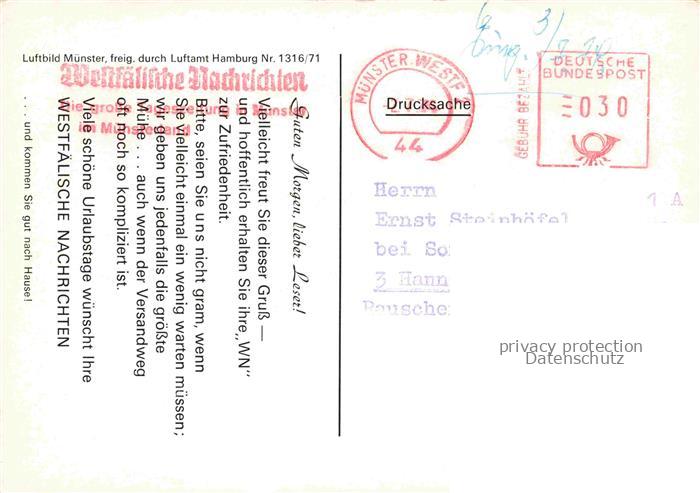 Luftbild Münster, freig. durch Luftamt Hamburg Nr. 1316/71
Westfälische Nachrichten
Die große
im Münsterland
Guten Morgen, lieber Leser!
Vielleicht freut Sie dieser Gruß —
und hoffentlich erhalten Sie ihre „WN"
zur Zufriedenheit.
Bitte, seien Sie uns nicht gram, wenn
Sie vielleicht einmal ein wenig warten müssen;
wir geben uns jedenfalls die größte
Mühe . . . auch wenn der Versandweg
oft noch so kompliziert ist.
Viele schöne Urlaubstage wünscht Ihre
WESTFÄLISCHE NACHRICHTEN
. . . und kommen Sie gut nach Hause!
MÜNSTER, WESTF
44
Drucksache
GEBÜHR BEZAHLT
DEUTSCHE
BUNDESPOST
030
Herrn
1 A
Ernst Steinhöfel
bei So
3 Hann
Rausche
privacy protection
Datenschutz